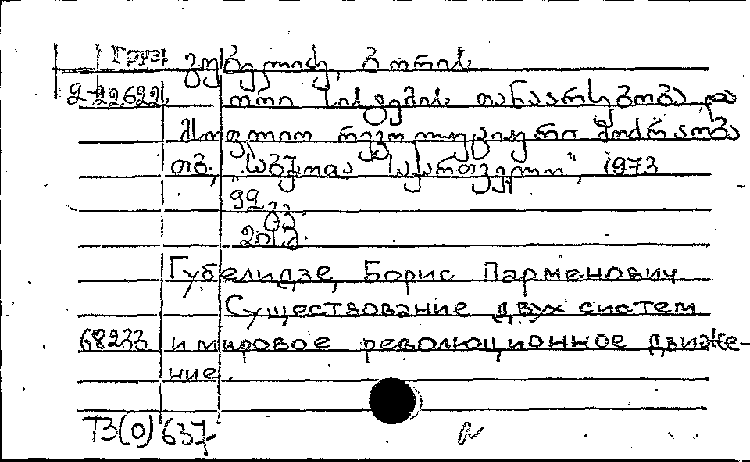 Груз გუბელიძე, ბორის
2-22622 ორი სისტემის თანაარსებობა და
მსოფლიო რევოლუციური მოძრაობა
თბ., "საბჭოთა საქართველო", 1973
99 გვ.
20 სმ.
Губелидзе, Борис Парменович
Существование двух систем
68233 и мировое революционное движе-
ние.
Т3(0)637